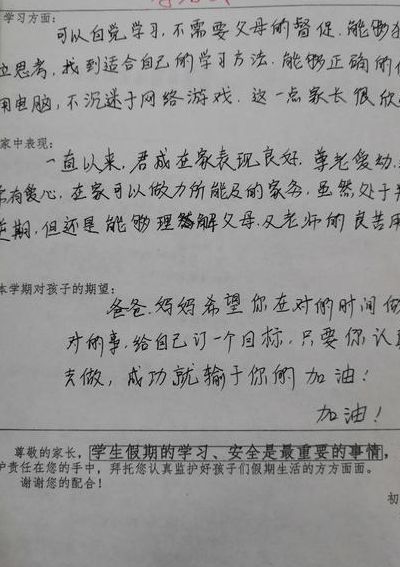 学习方面：
可以自觉学习，不需要父母的督促，能够独
立思考，找到适合自己的学习方法，能够正确的使
用电脑，不沉迷于网络游戏，这一点家长很欣
家中表现：
一直以来，君成在家表现良好，尊老爱幼，
有爱心，在家可以做力所能及的家务，虽然处于叛
逆期，但还是能够理解父母及老师的良苦用
本学期对孩子的期望：
爸爸，妈妈希望你在对的时间做
对的事，给自己订一个目标，只要你认真
去做，成功就输于你的 加油！
加油！
尊敬的家长，学生假期的学习、安全是最重要的事情，
护责任在您的手中，拜托您认真监护好孩子们假期生活的方方面面。
谢谢您的配合！
初